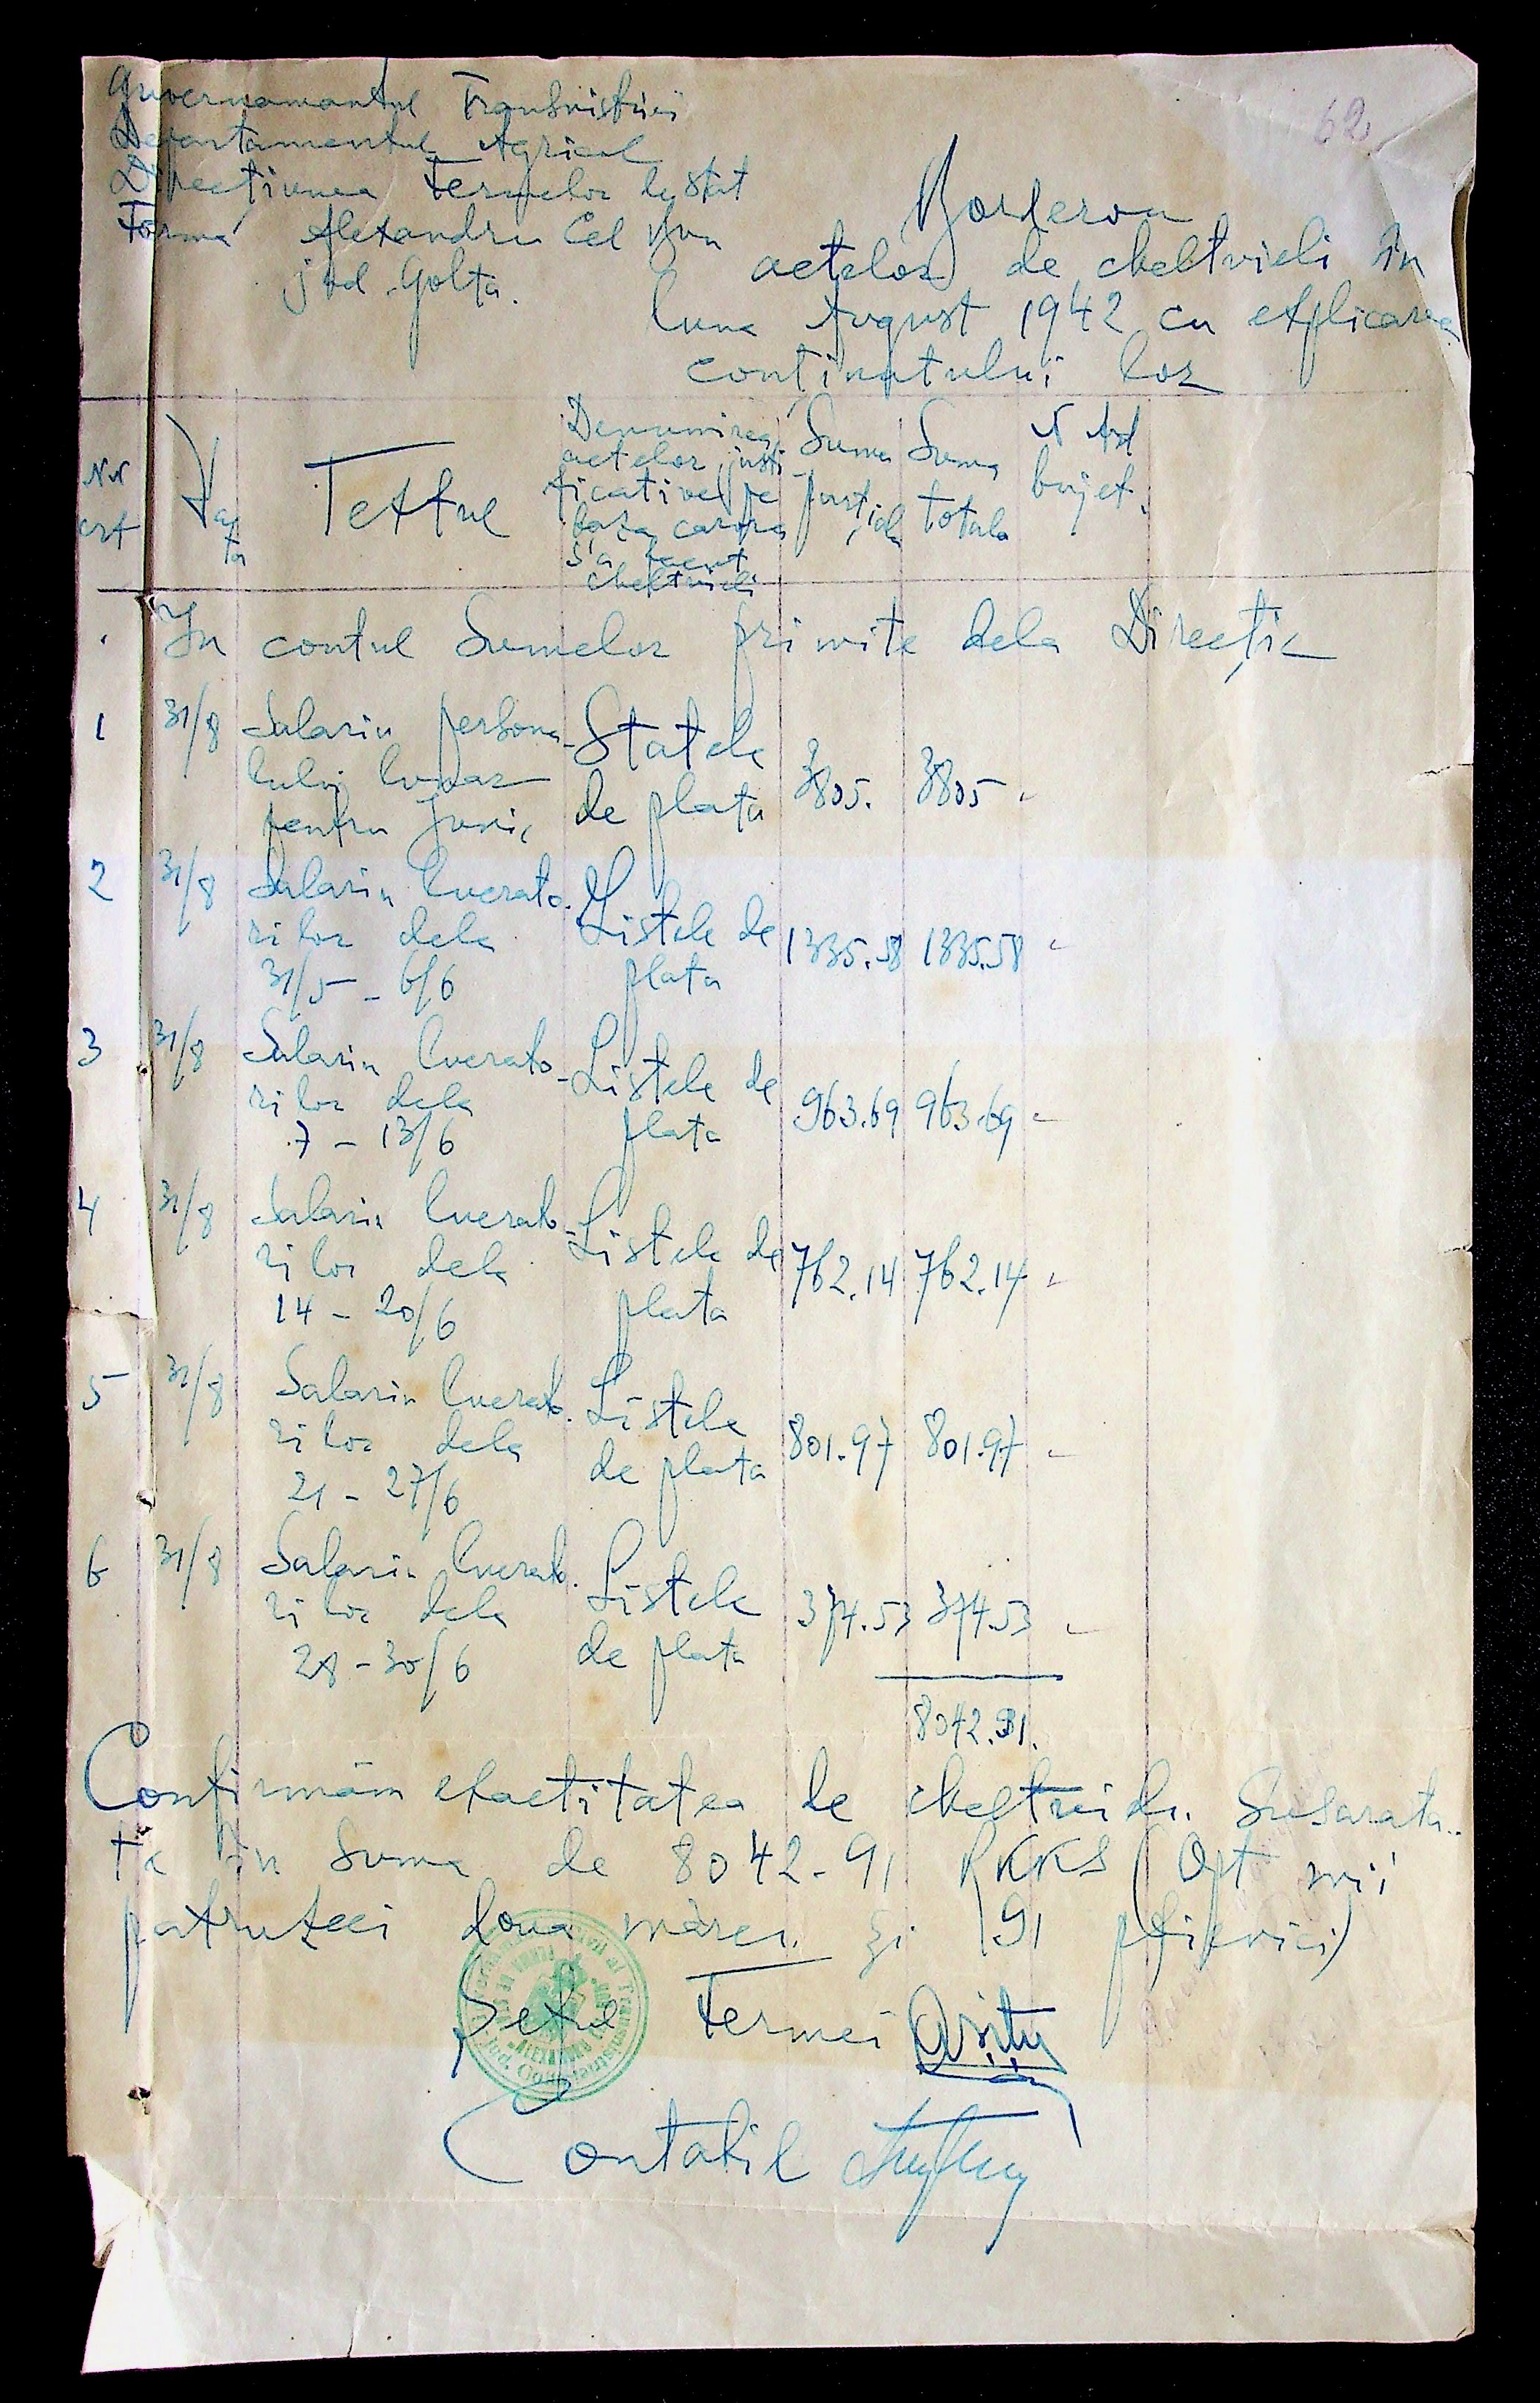 62
Guvernamantul Transnistriei
Departamentul Agricol
Direcțiunea Fermelor de Stat
Ferma Alexandru Cel Bun
jud. Golta.
Borderou
actelor de cheltuieli în
luna August 1942 cu explicarea
conținutului lor
Nr crt
Data
Textul
Denumirea actelor justificative pe baza carora s'a facut cheltuieli
Suma parțiala
Suma totala
N Art bujet.
In contul Sumelor primite dela Direcție
1 31/8 Salariu persona- Statele
lului lunar de plata 3805. 3805 -
pentru Junie
2 31/8 Salariu lucrato- Listele de
rilor dela plata 1335.58 1335.58 -
31/5 - 6/6
3 31/8 Salariu lucrato- Listele de
rilor dela plata 963.69 963.69 -
7 - 13/6
4 31/8 Salariu lucrato- Listele de
rilor dela plata 762.14 762.14 -
14 - 20/6
5 31/8 Salariu lucrato- Listele
rilor dela de plata 801.97 801.97 -
21 - 27/6
6 31/8 Salariu lucrato- Listele
rilor dela de plata 374.53 374.53 -
28 - 30/6
8042.91.
Confirmăm exactitatea de cheltuieli susarata-
te în suma de 8042-91 RKKS (Opt mii
patruzeci doua mărci și 91 pfienici)
Șeful Fermei
Contabil